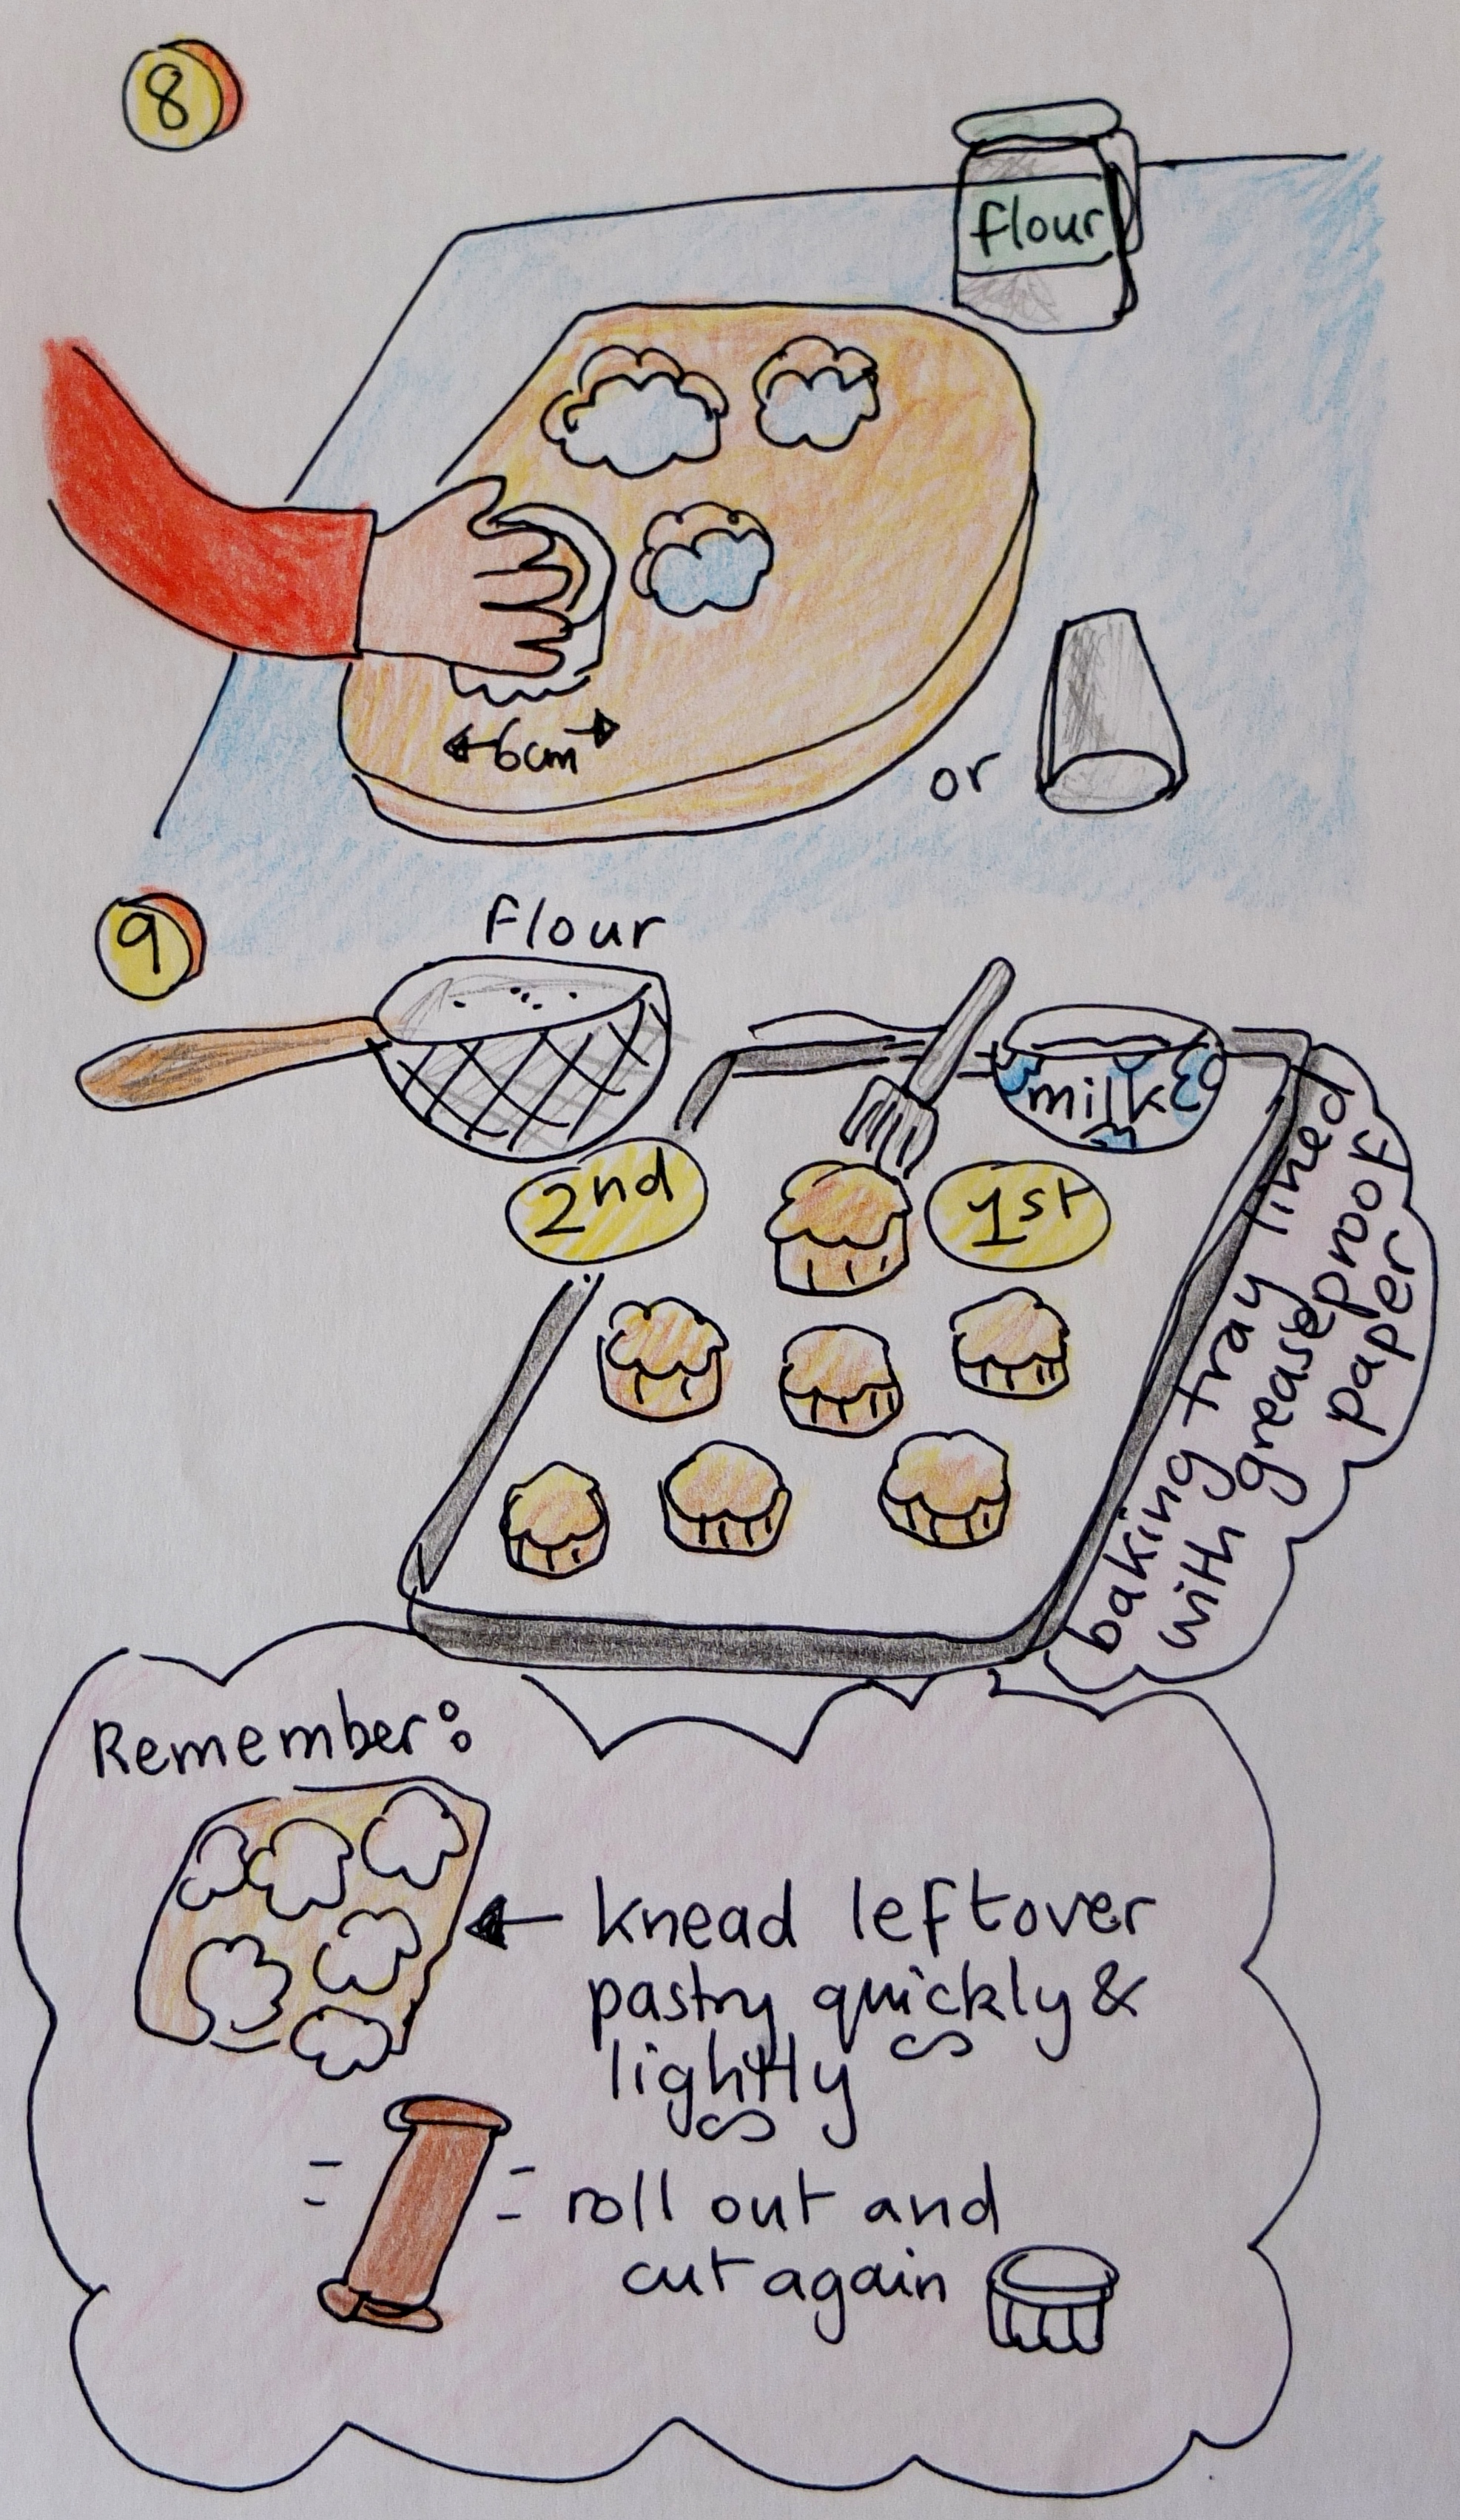 8
flour
6cm
or
9
Flour
milk
2nd
1st
baking tray lined
with greaseproof
paper
Remember:
knead leftover
pastry quickly &
lightly
roll out and
cut again